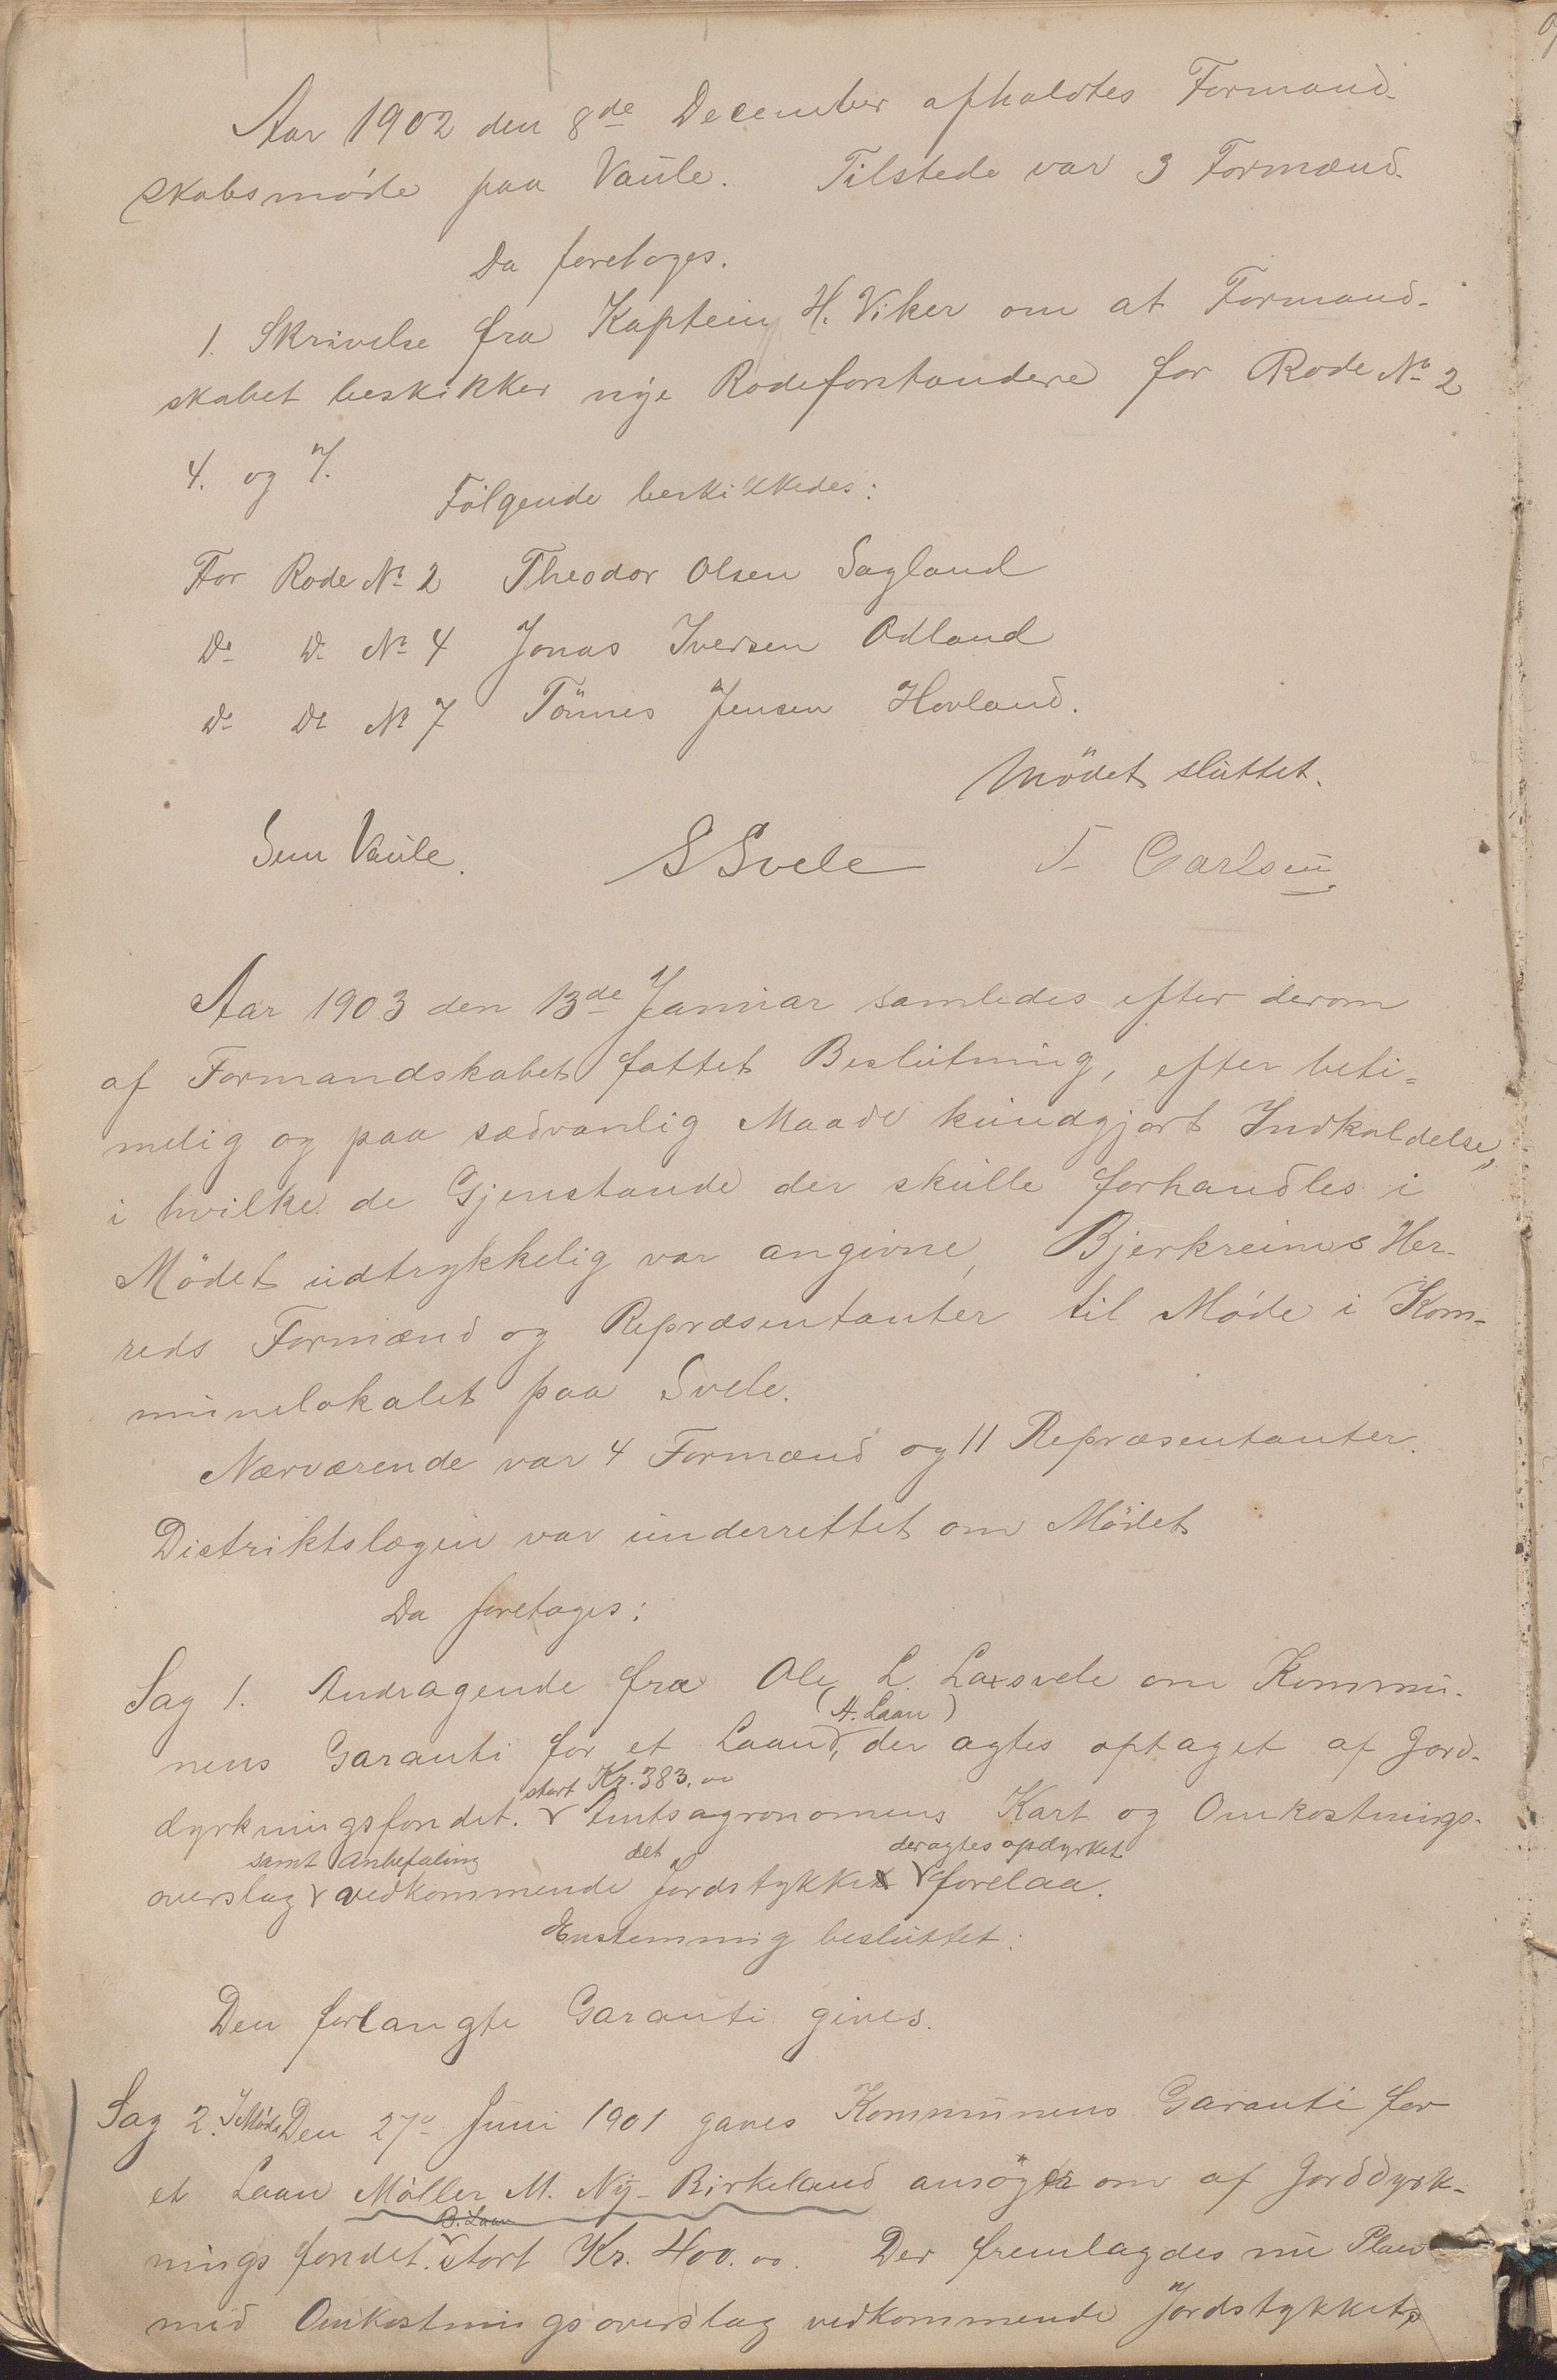 Aar 1902 den 8de December afholdtes Formand-
skabsmøde paa Vaule. Tilstede var 3 Formænd.
Da foretoges.
1. Skrivelse fra Kaptein H. Viker om at Formand-
skabet beskikker nye Rodeforstandere for Rode No 2
4. og 7.
Følgende beskikkedes:
For Rode No 2 Theodor Olsen Sagland
Do Do No 4 Jonas Iversen Odland
Do Do No 7 Tönnes Jensen Hovland.
Mödet sluttet.
Sem Vaule. S Svele T Carlsen
Aar 1903 den 13de Januar samledes efter derom
af Formandskabet fattet Beslutning, efter beti-
melig og paa sædvanlig Maade kundgjort Indkaldelse,
i hvilke de Gjenstande der skulle forhandles i
Mödet udtrykkelig var angivne, Bjerkreims Her-
reds Formænd og Repræsentanter til Møde i Kom-
munelokalet paa Svele.
Nærværende var 4 Formænd og 11 Repræsentanter.
Distriktslægen var underrettet om Mödet
Da foretoges:
Sag 1. Andragende fra Ole L. Laxsvele om Kommu-
(A. Laan)
nens Garanti for et Laan, der agtes optaget af Jord-
stort Kr. 383.00
dyrkningsfondet. Amtsagronomens Kart og Omkostnings-
samt Anbefaling det der agtes opdyrket
overslag vedkommende Jordstykke forelaa.
Enstemmig besluttet:
Den forlangte Garanti gives.
Sag 2. I Møde Den 27de Juni 1901 gaves Kommunens Garanti for
et Laan Möller M. Ny-Birkeland ansögte om af Jorddyrk-
B. Laan
ningsfondet. stort Kr. 400.00. Der fremlagdes nu Plan
med Omkostningsoverslag vedkommende Jordstykket,